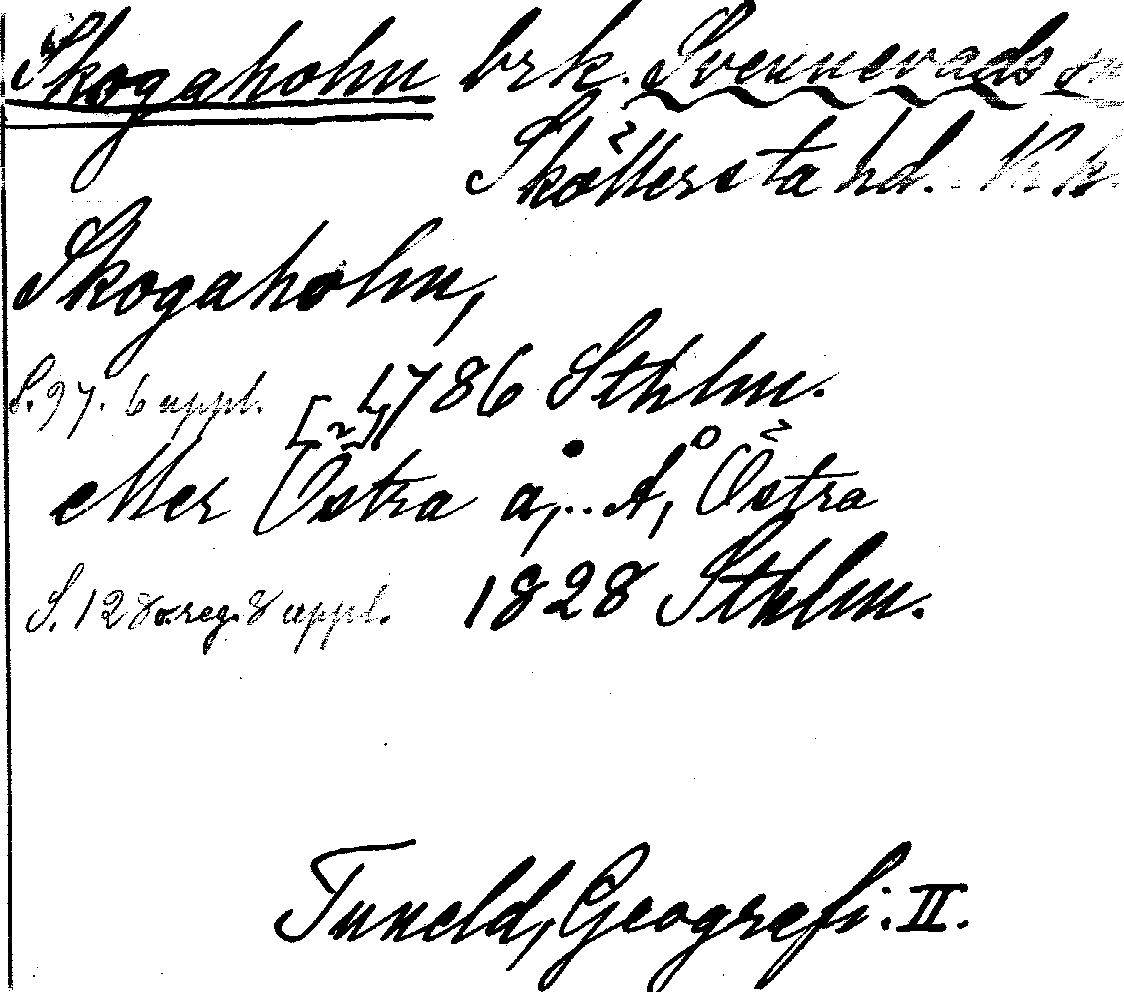 Skogaholm brk. Svennevads sn
Sköllersta hd. Nrk.
Skogaholm,
S. 97. 6 uppl. [~] 1786 Sthlm.
eller Östra å, .. Å, Östra
S. 128 o. reg. 8 uppl. 1828 Sthlm.
Tuneld, Geografi. II.